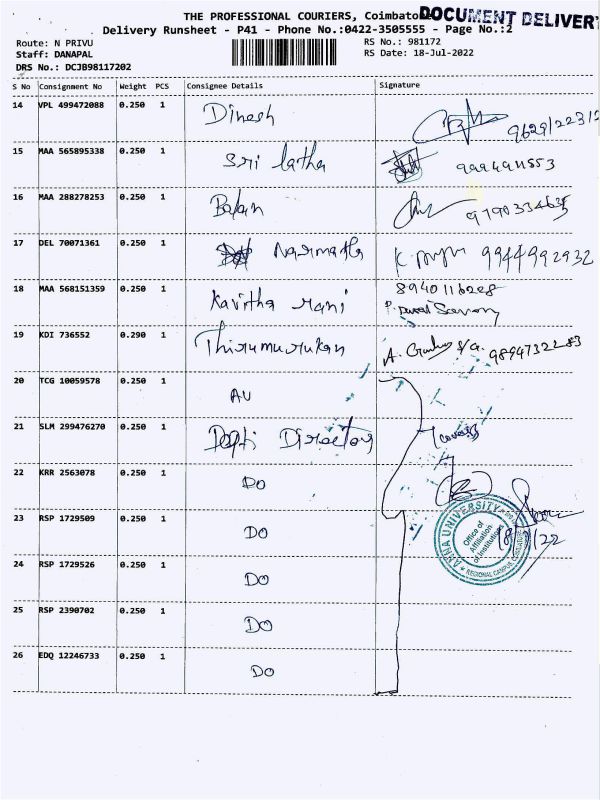 THE PROFESSIONAL COURIERS, Coimbatore
DOCUMENT DELIVERY
Delivery Runsheet - P41 - Phone No.:0422-3505555 - Page No.:2
Route: N PRIVU
RS No.: 981172
Staff: DANAPAL
RS Date: 18-Jul-2022
DRS No.: DCJB98117202
S No Consignment No Weight PCS Consignee Details Signature
14 VPL 499472088 0.250 1 Dinesh
15 MAA 565895338 0.250 1 Sri latha
16 MAA 288278253 0.250 1 Balan
17 DEL 70071361 0.250 1 Narmatha 9944992932
18 MAA 568151359 0.250 1 Kavitha rani 8940116228
19 KDI 736552 0.290 1 Thirumurukan
20 TCG 10059578 0.250 1 AU
21 SLM 299476270 0.250 1 Director
22 KRR 2563078 0.250 1 DO
23 RSP 1729509 0.250 1 DO
ANNA UNIVERSITY
Office of
Affiliation
of Institutions
REGIONAL CAMPUS, COIMBATORE
24 RSP 1729526 0.250 1 DO
25 RSP 2390702 0.250 1 DO
26 EDQ 12246733 0.250 1 DO